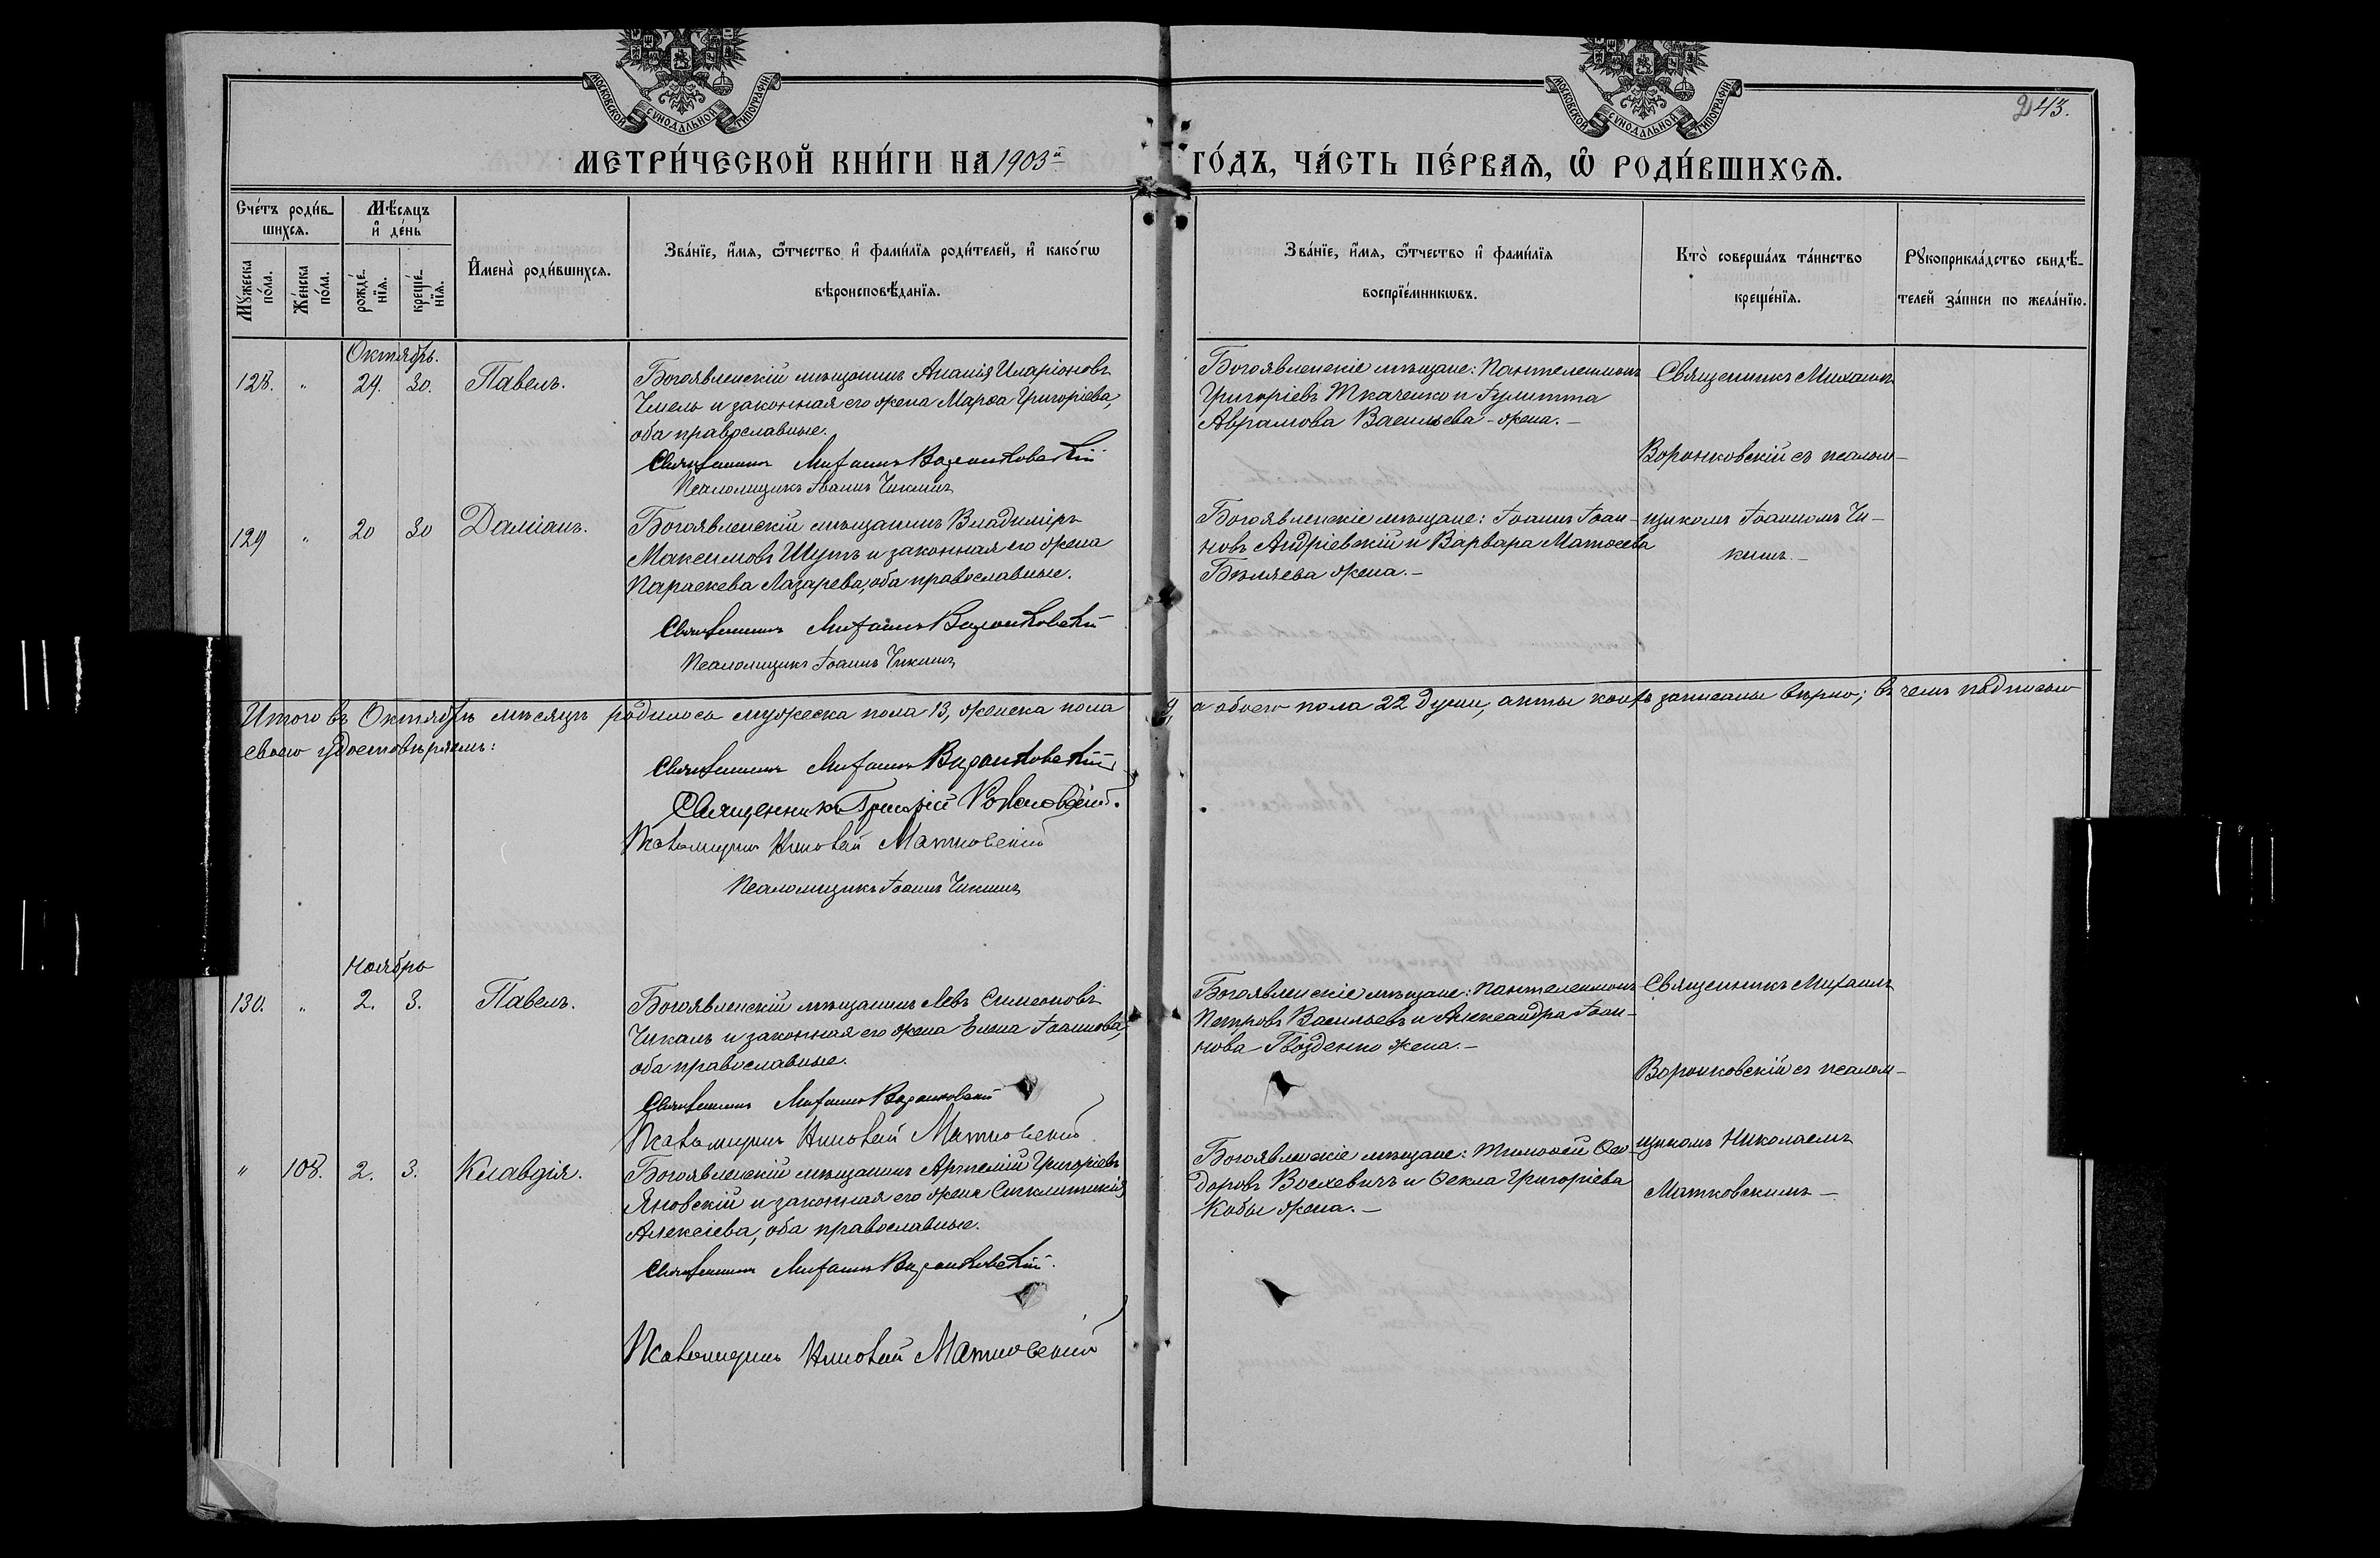 МОСКОВСКОЙ СѴНОДАЛЬНОЙ ТИПОГРАФІИ
МОСКОВСКОЙ СѴНОДАЛЬНОЙ ТИПОГРАФІИ
243.
МЕТРИ́ЧЕСКОЙ КНИ́ГИ НА 1903й ГО́ДЪ, ЧА́СТЬ ПЕ́РВАѦ, Ѡ҆ РОДИ́ВШИХСѦ.
Сче́тъ роди́в-
шихсѧ.
Мѣ́сѧцъ
и҆ де́нь
Мꙋ́жеска
по́ла.
Же́нска
по́ла.
рожде́-
нїѧ.
креще́-
нїѧ.
И҆мена̀ роди́вшихсѧ.
Зва́нїе, и҆́мѧ, ѻ҆́тчество и҆ фами́лїѧ роди́телей, и҆ како́гѡ
вѣроисповѣ́данїѧ.
Зва́нїе, и҆́мѧ, ѻ҆́тчество и҆ фами́лїѧ
воспрїе́мникѡвъ.
Кто̀ соверша́лъ та́инство
креще́нїѧ.
Рꙋкоприкла́дство свидѣ́-
телей за́писи по жела́нїю.
Октябрь.
128. " 29. 30. Павелъ.
Богоявленскій мѣщанинъ Ананія Иларіоновъ
Чмель и законная его жена Марѳа Григоріева,
оба православные.
Священникъ Михаилъ Воронковскій
Псаломщикъ Іоаннъ Чикинъ
Богоявленскіе мѣщане: Пантелеимонъ
Григоріевъ Ткаченко и Іулитта
Аврамова Васильева - жена. -
Священникъ Михаилъ
Воронковскій съ псалом-
129 " 20 30 Даміанъ.
Богоявленскій мѣщанинъ Владиміръ
Максимовъ Шутъ и законная его жена
Параскева Лазарева, оба православные.
Священникъ Михаилъ Воронковскій
Псаломщикъ Іоаннъ Чикинъ
Богоявленскіе мѣщане: Іоаннъ Іоан-
новъ Андріевскій и Варвара Матѳеева
Бѣляева жена. -
щикомъ Іоанномъ Чи-
кинъ. -
Итого въ Октябрѣ мѣсяцѣ родилось мужеска пола 13, женска пола 9, а обоего пола 22 души, акты коихъ записаны вѣрно; въ чемъ подписью
своею удостовѣряемъ:
Священникъ Михаилъ Воронковскій
Священникъ Григорій
Псаломщикъ Николай Матковскій
Псаломщикъ Іоаннъ Чикинъ
Ноябрь
130. " 2. 3. Павелъ.
Богоявленскій мѣщанинъ Левъ Симеоновъ
Чикалъ и законная его жена Елена Іоаннова,
оба православные.
Священникъ Михаилъ Воронковскій
Псаломщикъ Николай Матковскій
Богоявленскіе мѣщане: Пантелеимонъ
Петровъ Васильевъ и Александра Іоан-
нова Гвозденко жена. -
Священникъ Михаилъ
Воронковскій съ псалом-
" 108. 2. 3. Клавдія.
Богоявленскій мѣщанинъ Артемій Григоріевъ
Яновскій и законная его жена Сигклитикія
Алексіева, оба православные.
Священникъ Михаилъ Воронковскій.
Псаломщикъ Николай Матковскій
Богоявленскіе мѣщане: Тимоѳей Ѳео-
доровъ Восхевичъ и Ѳекла Григоріева
Кобы жена. -
щикомъ Николаемъ
Матковскимъ -